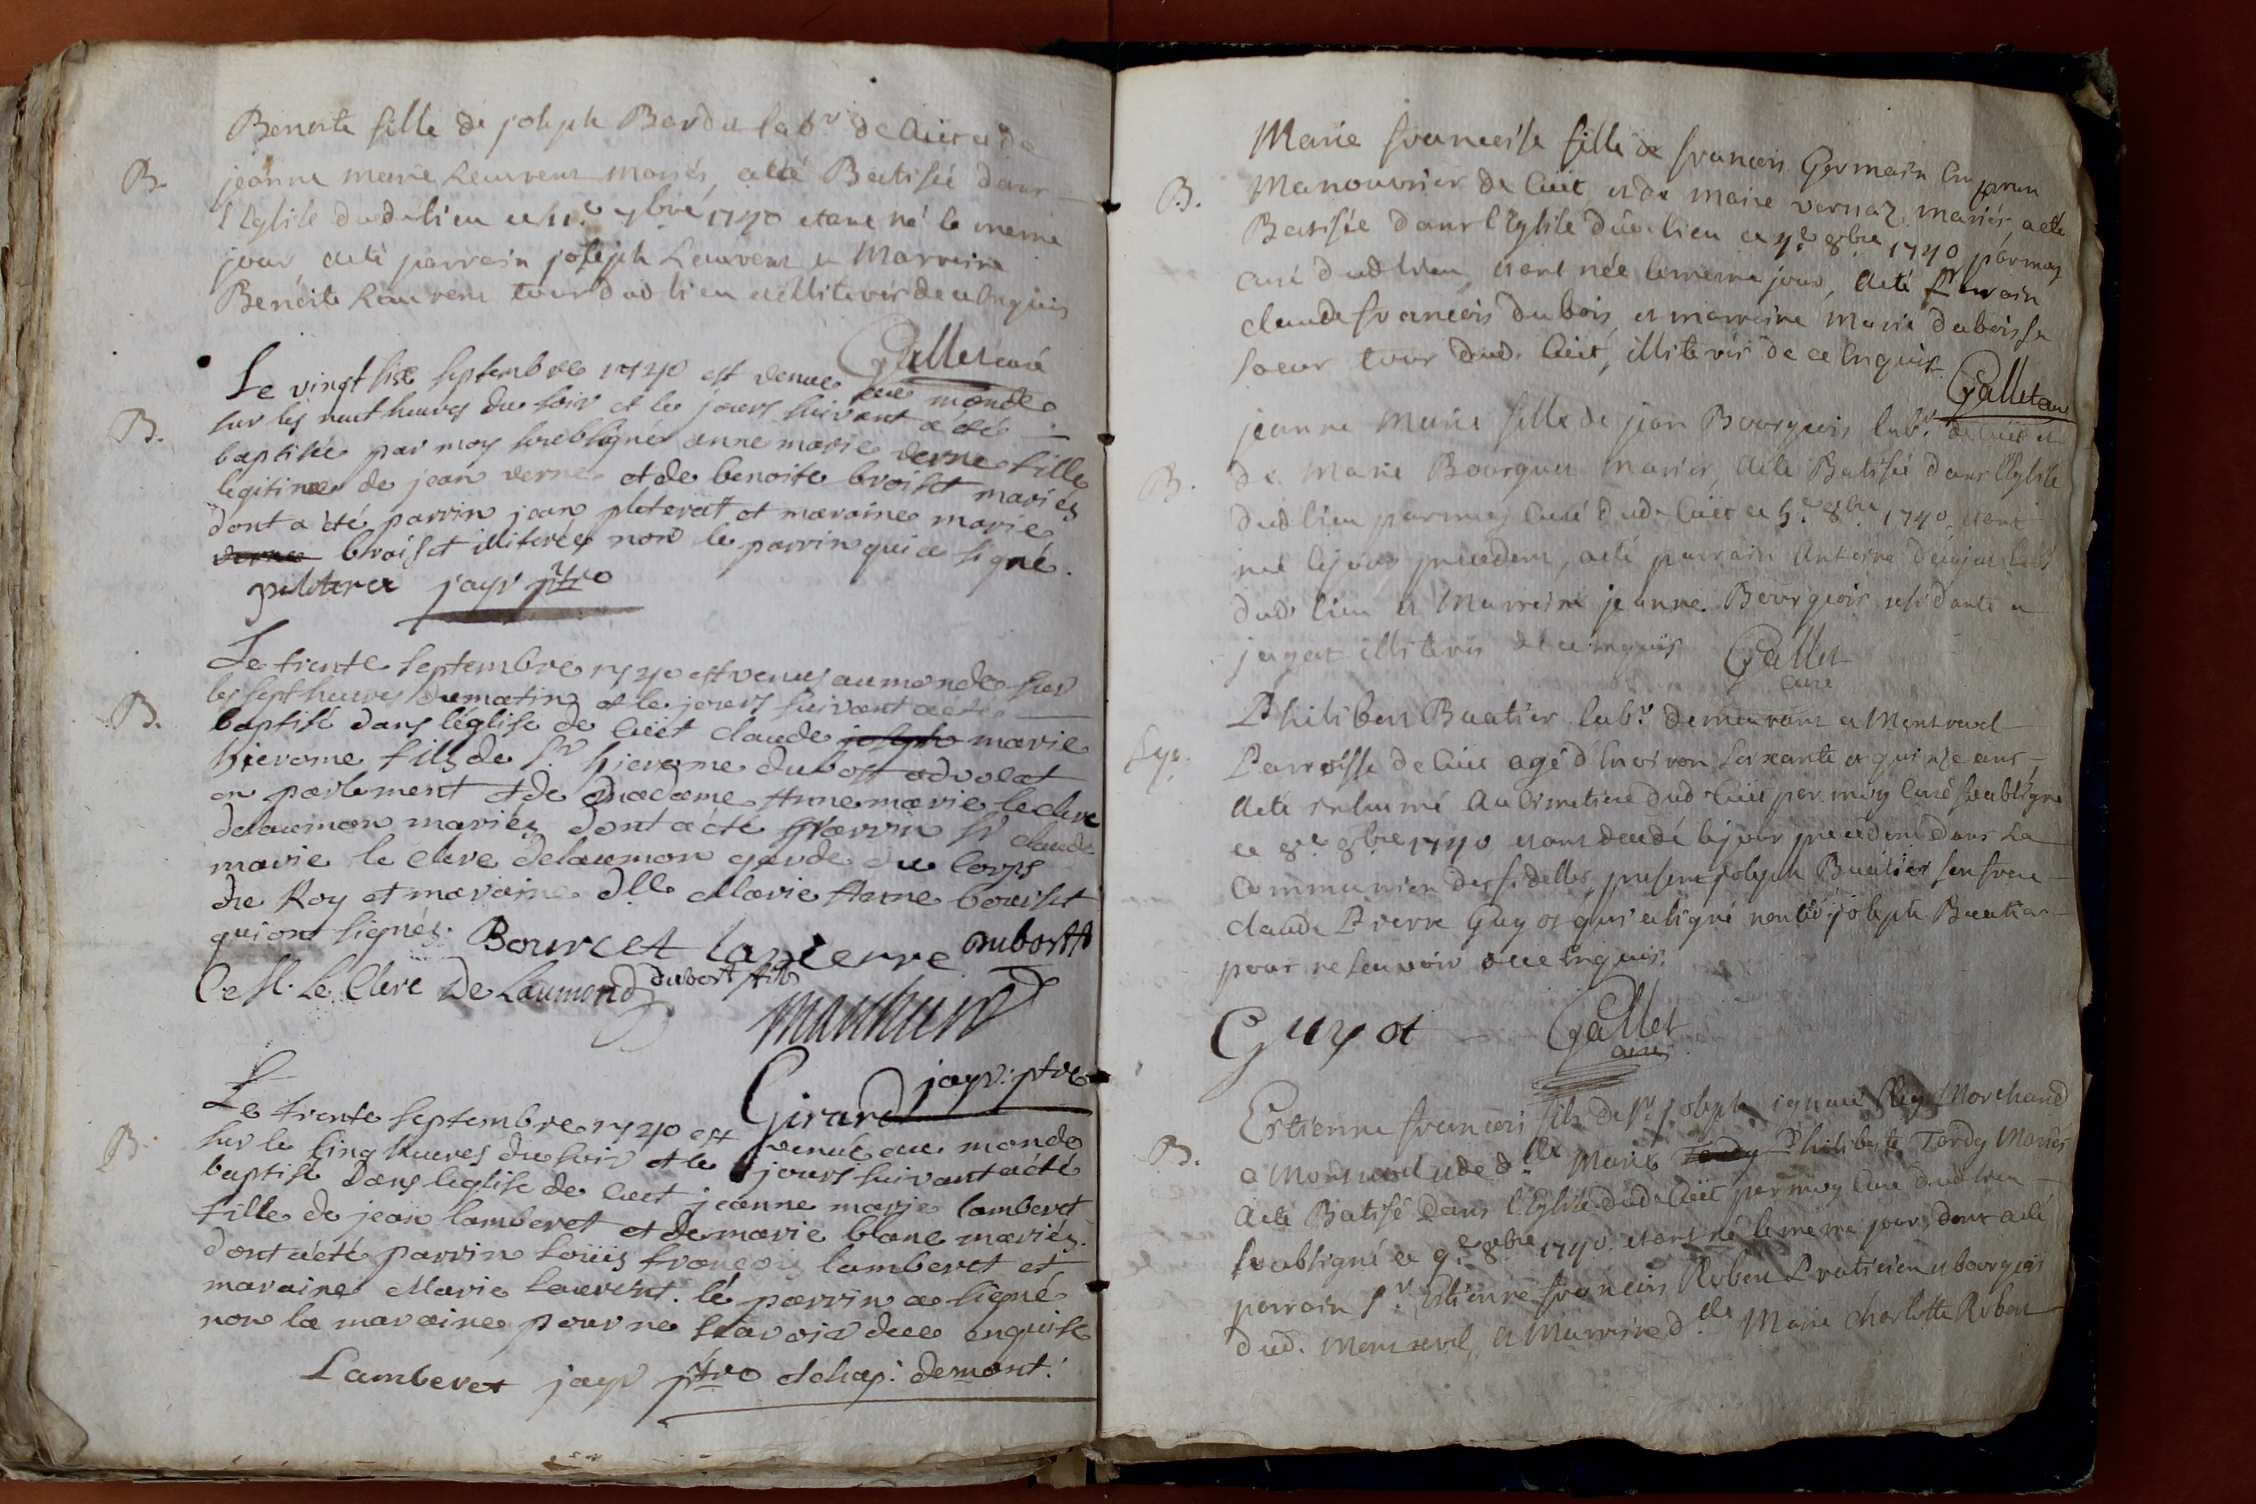 Benoite fille de joseph Bardet lab.r de Cuet et de
B.
jeanne marie Laurent mariés, a été Batisée dans
l'Eglise dud. lieu ce 11.e 7bre 1740 etant né le meme
jour, a été parrain joseph Laurent et Marraine
Benoite Laurent tous dud lieu illiterés de ce Enquis
Gallet curé
Le vingt six septembre 1740 est venue au monde
B.
sur les huit heures du soir et le jours suivant a été
baptisée par moy soubsigné anne marie verne fille
legitime de jean verne et de benoite broiset mariés
dont a été parrin jean peleterat et maraine marie
verne broiset illiterée non le parrin qui a signé.
peleterat jayr ptre
Le trente septembre 1740 est venus au monde sur
les sept heures du matin et le jours suivant a été
B.
baptisé dans l'église de cuët claude joseph marie
hierome fils de Sr. hierome dubost advocat
en parlement et de madame Anne marie leclerc
delaumon mariés dont a été parrin Sr claude
marie le clerc delaumon garde du corps
du Roy et maraine dlle Marie Anne bourset
qui ont signés. Bourcet lapierre dubost
C. M. Le Clerc De Laumond dubost
Girard jayr: ptre
Le trente septembre 1740 est venue au monde
B.
sur le cinq heures du soir et le jours suivant a été
baptisé dans l'eglise de cuet jeanne marie lamberet
fille de jean lamberet et de marie blanc mariés.
dont a été parrin Loüis françois lamberet et
maraine Marie laurent. le parrin a signé
non la maraine pour ne scavoir de ce enquise
Lamberet jayr ptre et chap: demont:
Marie francoise fille de francois Germain
B.
Manouvrier de Cuët et de Marie vernaz mariés, a été
Batisée dans l'Eglise dud. lieu ce 4.e 8bre 1740 par moy
curé dud lieu, etant née le meme jour, a été Parrain
claude francois dubois et marraine Marie dubois sa
soeur tous dud. Cuët, illiterés de ce Enquis
Gallet curé
jeanne Marie fille de jean Bourgeois lab.r de Cuët et
B.
de Marie Bourquet mariés, a été Batisée dans l'Eglise
dud lieu par moy Curé dud. Cuët ce 5.e 8bre 1740, etant
née le jour precedent, a été parrain Antoine
dud. lieu et Marraine jeanne Bourgeois residante a
jayat illiterés de ce enquis
Gallet
curé
Philibert Buatier lab.r demeurant a Montrevel
Sep.
Parroisse de Cuët agé d'Environ soixante et quinze ans
a été inhumé au Cimetiere dud Cuët par moy Curé soubsigné
ce 8.e 8bre 1740 etant decedé le jour precedent dans la
Communion des fidelles, present joseph Buatier son frere
claude Pierre Guyot qui a signé non led. joseph Buatier
pour ne scavoir de ce Enquis.
Guyot Gallet
curé
Estienne francois fils de Sr joseph ignace Marchand
B.
a Montrevel et de dlle Marie Tardy Philiberte Tardy Mariés
a été Batisé dans l'Eglise dud. Cuët par moy Curé dud lieu
soubsigné ce 9.e 8bre 1740. etant né le même jour, dont a été
parrain Sr. Estienne francois Robert Praticien et bourgeois
dud. Montrevel, et Marraine dlle Marie charlotte Robert